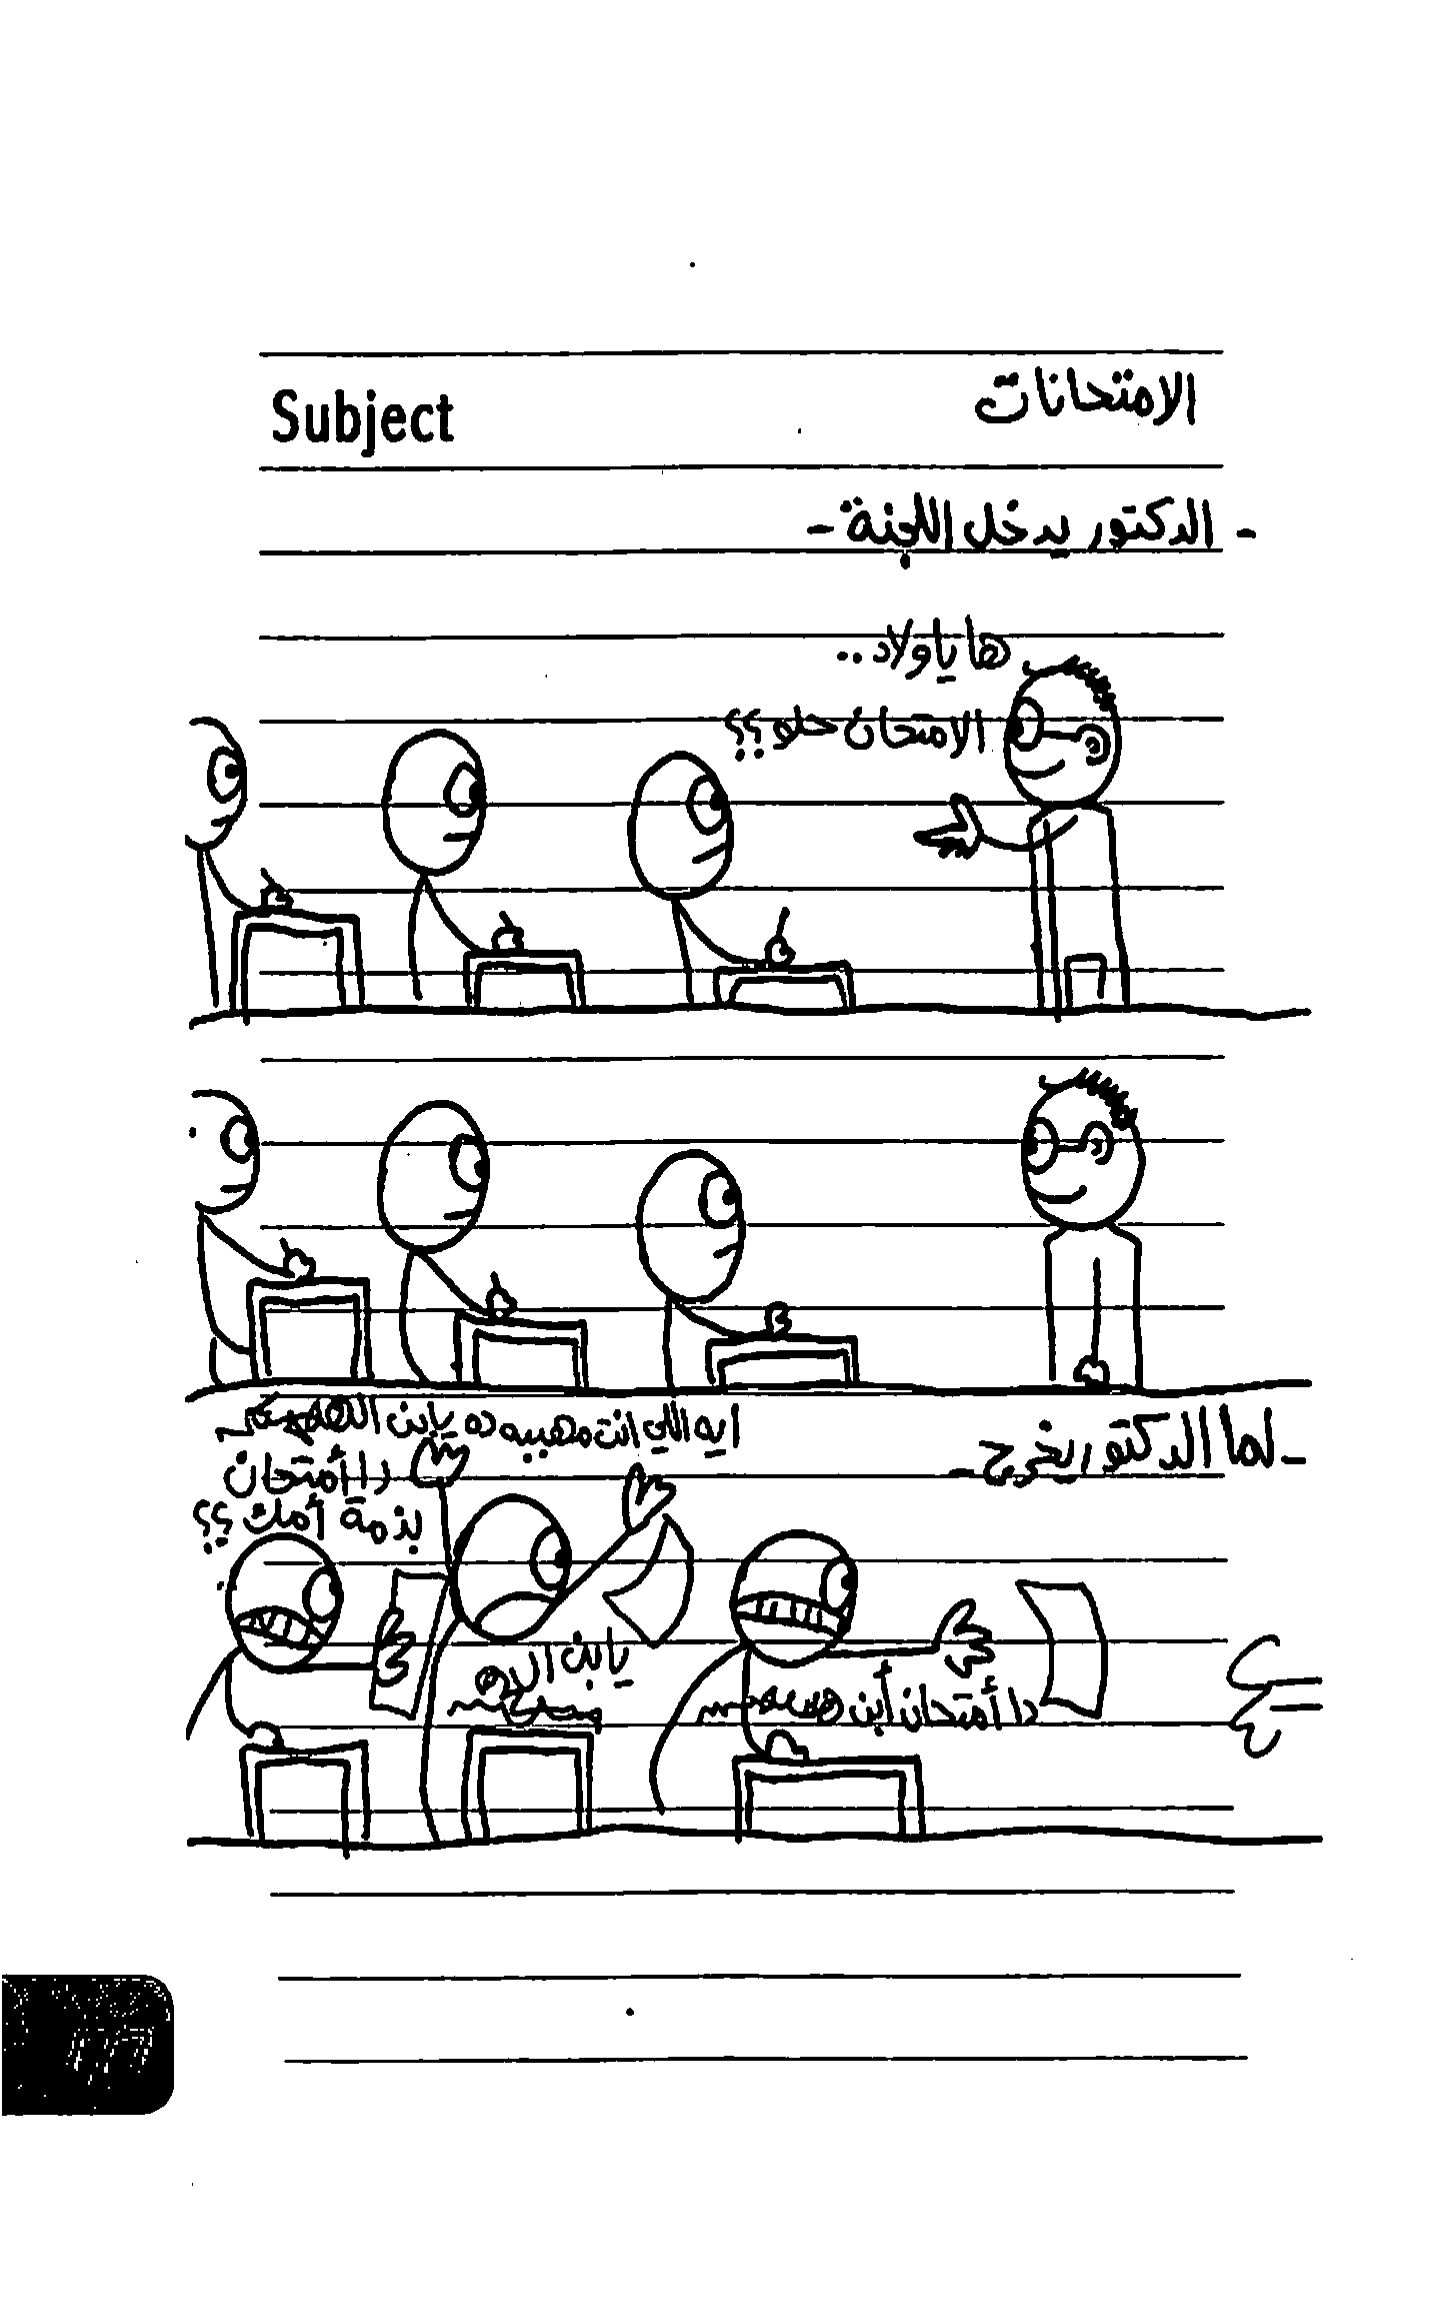 Subject الامتحانات
- الدكتور يدخل اللجنة -
ها يا ولاد..
الامتحان حلو ؟؟
- لما الدكتور يخرج -
ايه اللي انت مهببه ده يا ابن
دا أمتحان
بذمة أمك ؟؟
يا بن
دا أمتحان أبن